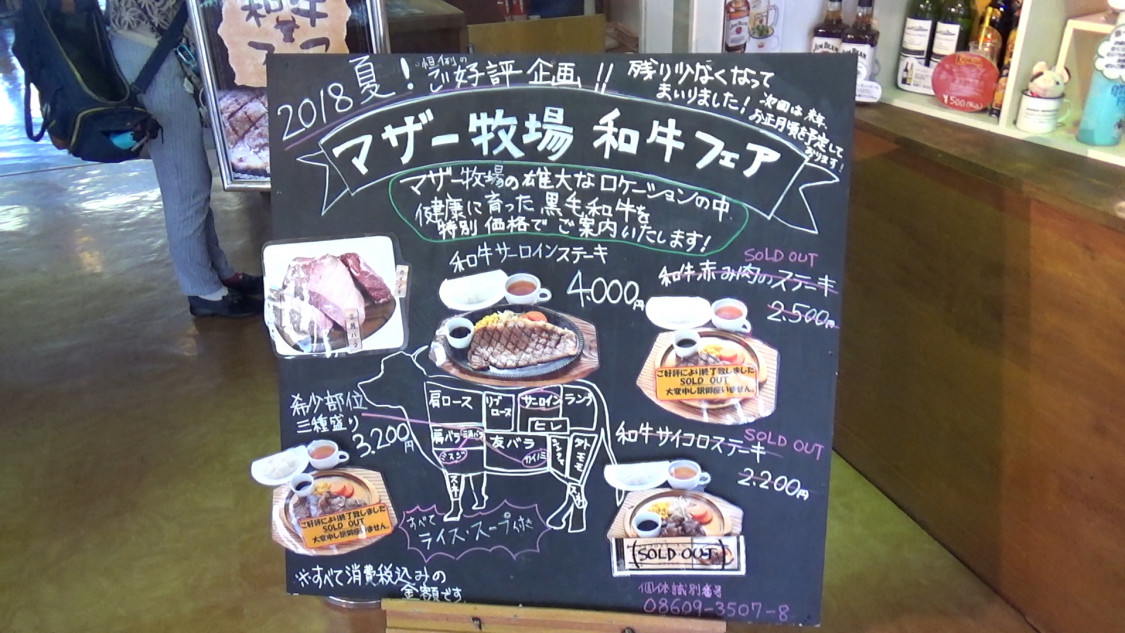 2018夏! 恒例のご好評企画!!
残り少なくなって
まいりました!
次回は来年
お正月頃を予定して
おります!
マザー牧場 和牛フェア
マザー牧場の雄大なロケーションの中
健康に育った黒毛和牛を
特別価格でご案内いたします!
和牛サーロインステーキ
4,000円
SOLD OUT
和牛赤み肉のステーキ
2,500円
ご好評により終了致しました
SOLD OUT
大変申し訳御座いません。
希少部位
三種盛り
3,200円
ご好評により終了致しました
SOLD OUT
大変申し訳御座いません。
肩ロース
リブロース
サーロイン
ランプ
ヒレ
肩バラ
三角バラ
友バラ
カイノミ
シンタマ
ソトモモ
スネ
スネ
和牛サイコロステーキ
SOLD OUT
2,200円
SOLD OUT
すべて
ライス・スープ付き
※すべて消費税込みの
金額です
個体識別番号
08609-3507-8
和牛
フェア
JIM BEAM
JIM BEAM
¥500